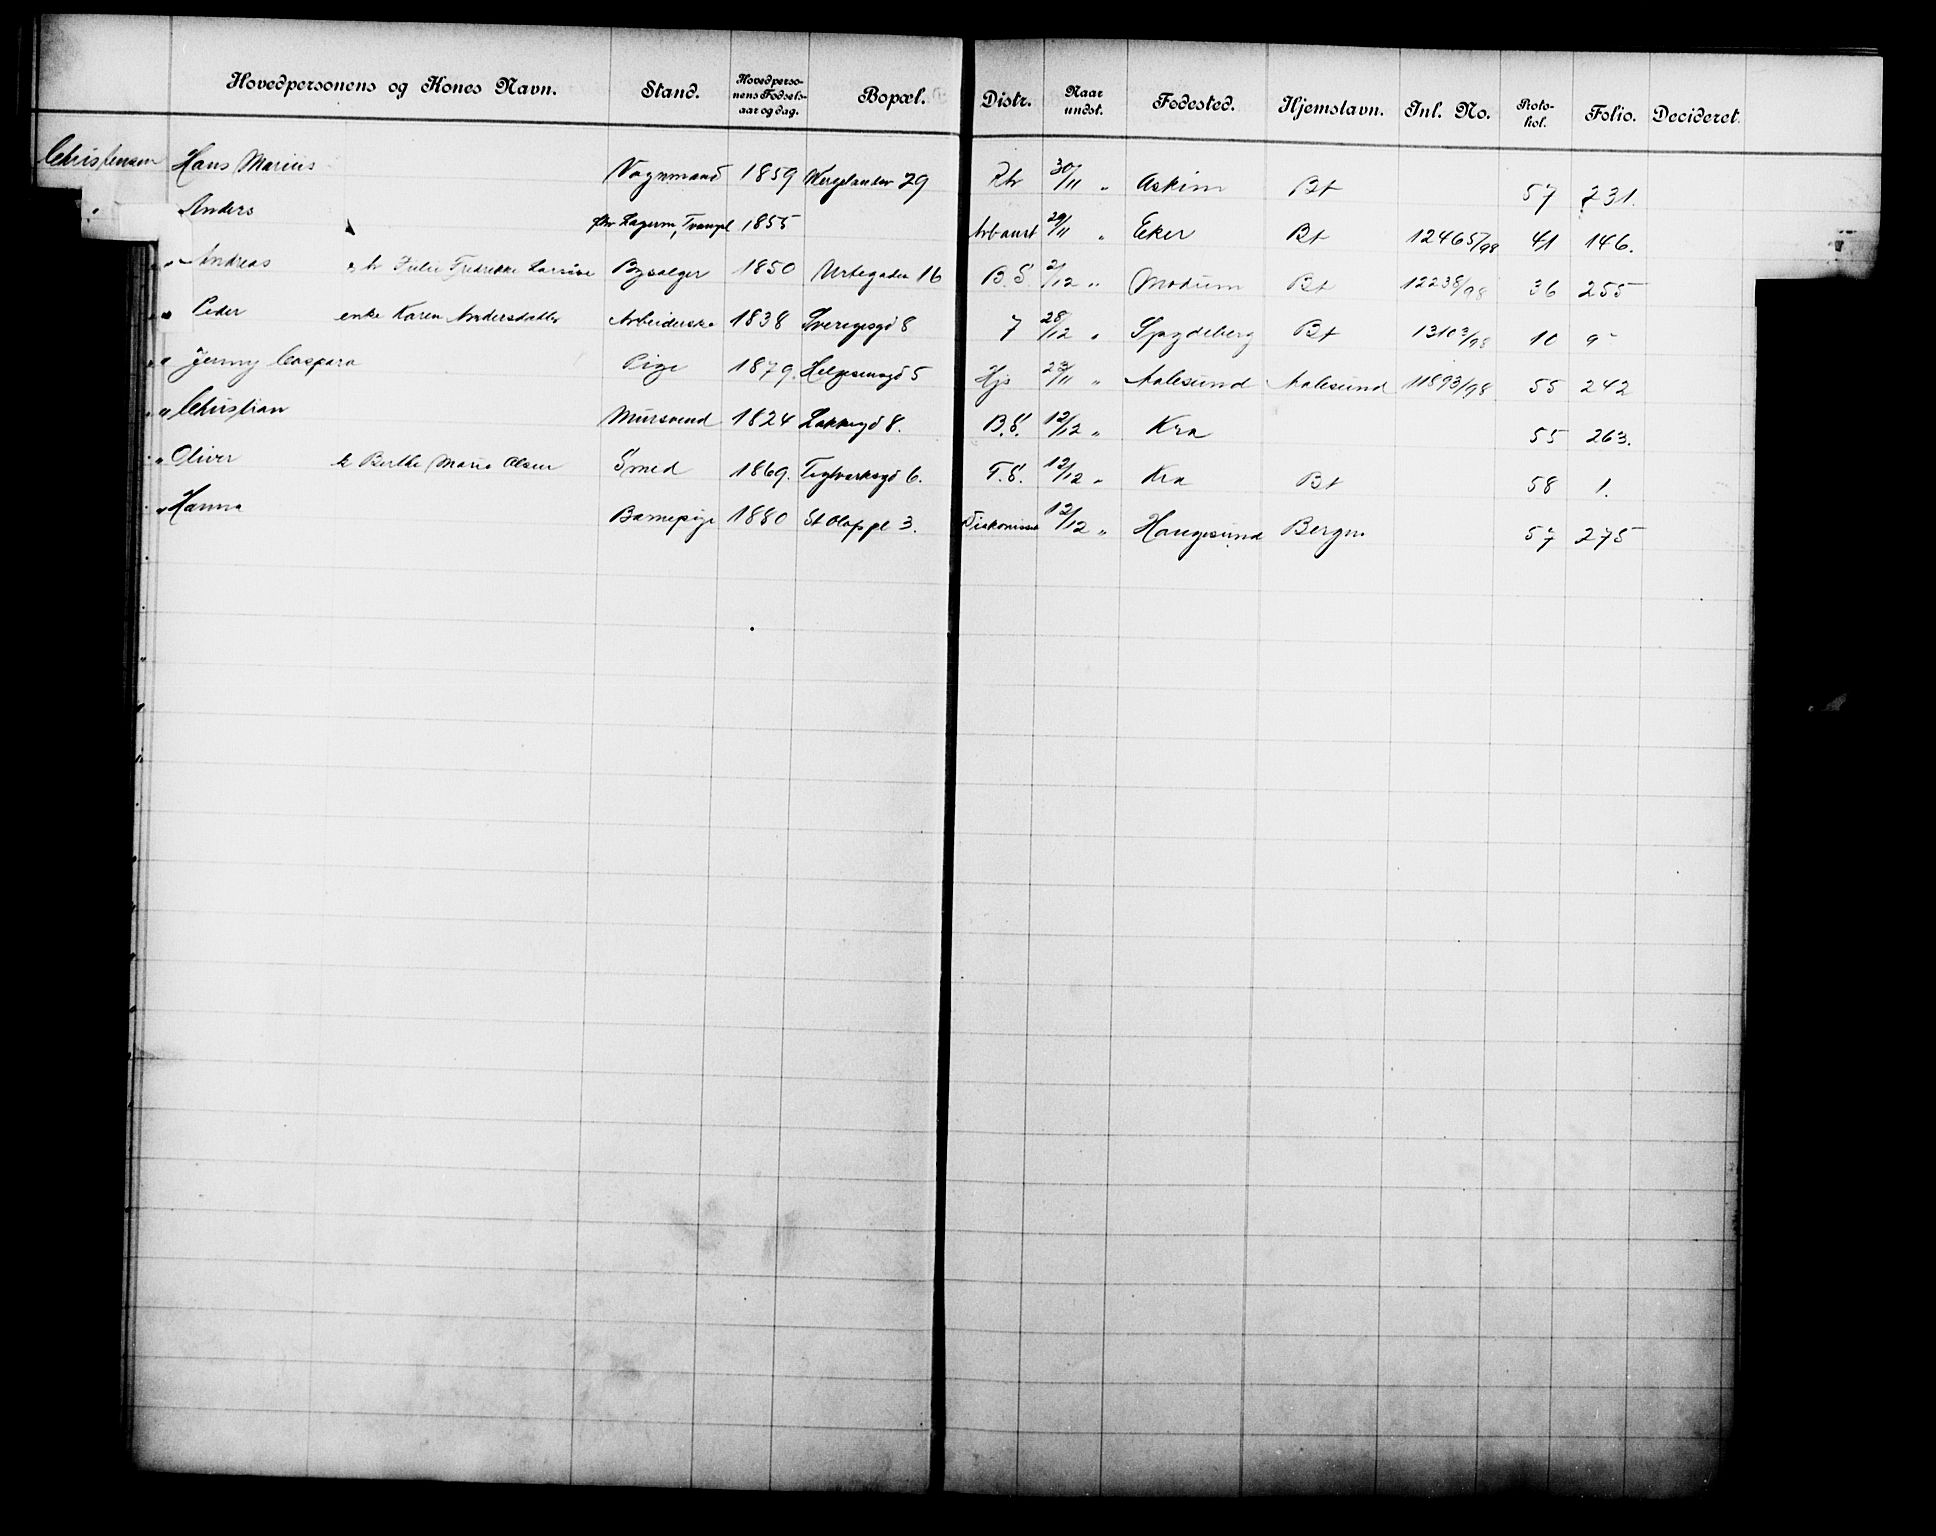 Hovedpersonens og Kones Navn. Stand. Hovedpersonens Fødselsaar og dag. Bopæl. Distr. Naar undst. Fødested. Hjemstavn. Inl. No. Protokol. Folio. Decideret.
Christensen Hans Marius Vognmand 1859 Wergelandsv 29 30/11 " Askim Bt 57 231.
" Anders 1855 29/11 " Eker Bt 12465/98 41 146.
" Andreas Julie Fredrikke Bysælger 1850 Urtegaden 16 B.S. 2/12 " Modum Bt 12238/98 36 255
" Peder enke Karen Andersdatter Arbeiderske 1838 Sverigesgd 8 7 28/12 " Spydeberg Bt 13103/98 10 9
" Jenny Caspara Pige 1879. Helgesensgd 5 Hjs 23/11 " Aalesund Aalesund 11893/98 55 242
" Christian Mursvend 1824 Lakkegd 8. B.S. 12/12 " Kra 55 263.
" Oliver k Berthe Marie Olsen Smed 1869. Teglverksgd 6. T.S. 12/12 " Kra Bt 58 1.
" Hanna Barnepige 1880 St Olafs pl 3. 12/12 " Haugesund Bergen 57 275